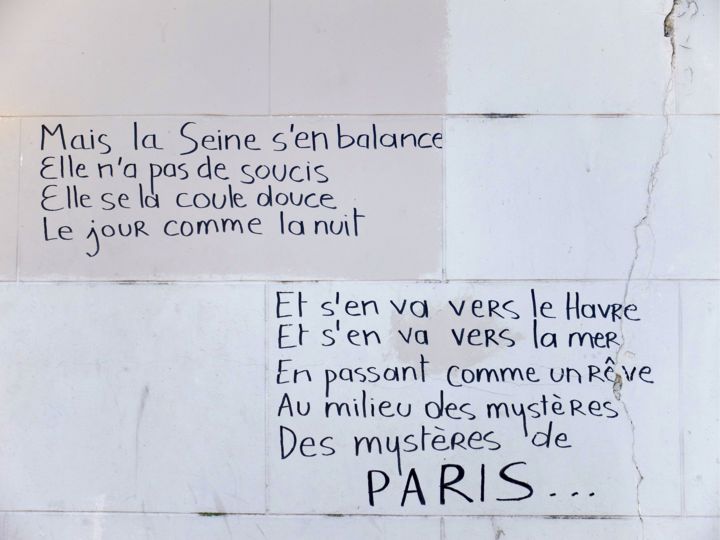 Mais la Seine s'en balance
Elle n'a pas de soucis
Elle se la coule douce
Le jour comme la nuit
Et s'en va vers le Havre
Et s'en va vers la mer
En passant comme un rêve
Au milieu des mystères
Des mystères de
PARIS...